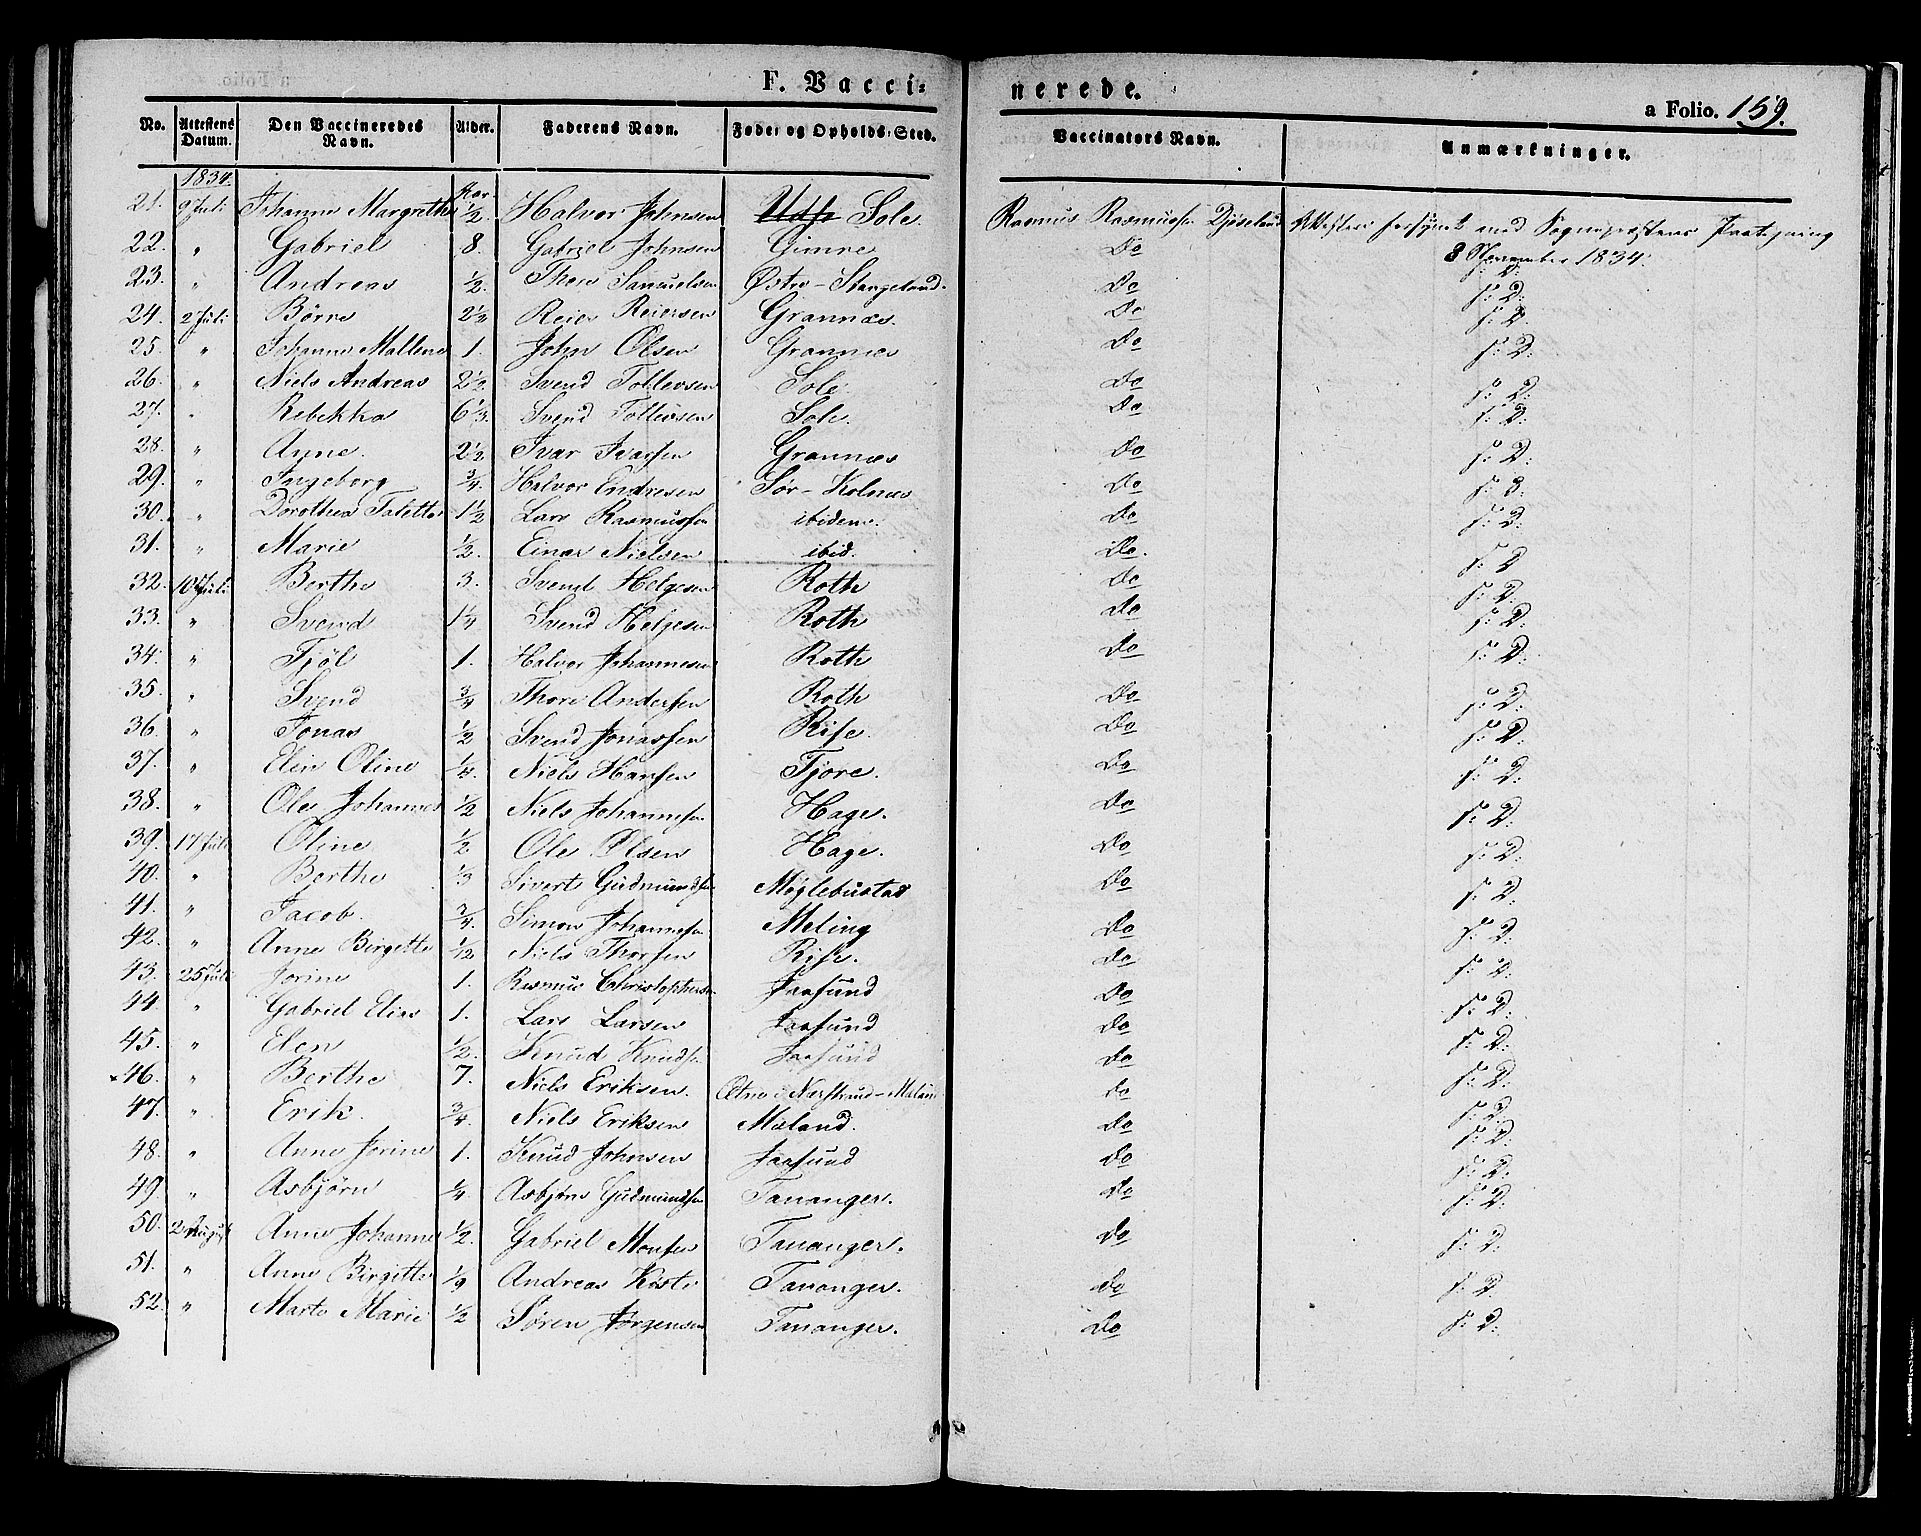 F. Vacci- nerede.
a Folio. 159.
No. Attestens Datum. Den Vaccineredes Navn. Alder. Faderens Navn. Føde- og Opholds-Sted. Vaccinators Navn. Anmærkninger.
1834. Aar.
21. 9 Juli Johanne Margrethe 1/2. Halvor Johnsen Sole Rasmus Rasmussen Attesten forsynet med Sognepræstens Paategning
22. " Gabriel 8. Gabriel Johnsen Gimre Do 8 November 1834.
23. " Andreas 1/2. Thore Samuelsen Østre-Stangeland. Do s: D:
24. 2 Juli Børre 2 1/2 Reier Reiersen Grannæs. Do s: D:
25. " Johanne Mallene 1. John Olsen Grannæs Do s: D:
26. " Niels Andreas 2 1/2. Svend Tollevsen Sole. Do s: D:
27. " Rebekka 6 1/3. Svend Tollevsen Sole. Do s: D:
28. " Anne. 2 1/2 Ivar Ivarsen Grannæs Do s: D:
29. " Ingeborg 3/4. Halvor Endresen Sør-Kolnæs Do s: D:
30. " Dorothea Taletta 1 1/2 Lars Rasmussen ibidem. Do s: D:
31. " Marie 1/2. Einar Nielsen ibid. Do. s: D
32. 10 Juli Berthe 3. Svend Helgesen Roth Do s: D:
33. " Svend 1/4 Svend Helgesen Roth Do s: D:
34. " Fjøl 1. Halvor Johannesen Roth Do s: D:
35. " Svend 3/4 Thore Andersen Roth Do s: D:
36. " Jonas 1/2 Svend Jonassen Rise. Do s: D:
37. " Elen Oline 1/4. Niels Hansen Tjore. Do s: D:
38. " Ole Johannes 1/2 Niels Johannesen Hage. Do s: D:
39. 17 Juli Oline 1/2 Ole Olsen Hage. Do s: D:
40. " Berthe 1/3 Sivert Gudmundsen Møglebustad Do s: D:
41. " Jacob. 3/4. Simon Johannesen Meling Do s: D:
42. " Anne Birgitte 1/12 Niels Thorsen Rise. Do s: D:
43. 25 Juli Jorine 1. Rasmus Christophersen Jaasund Do s: D:
44. " Gabriel Elias 1. Lars Larsen Jaasund Do s: D:
45. " Elen 1/2. Knud Knudsen Jaasund Do s: D:
46. " Berthe 7. Niels Eriksen. i Nærstrand-Mæland Do s: D:
47. " Erik. 3/4. Niels Eriksen Mæland. Do s: D:
48. " Anne Jorine 1. Knud Johnsen Jaasund Do s: D:
49. " Asbjørn 1/4 Asbjørn Gudmundsen Tananger. Do s: D:
50. 2 August Anne Johanne 1/2. Gabriel Monsen Tananger. Do s: D:
51. " Anne Birgitte 1/9 Andreas Tananger. Do s: D
52. " Marta Marie 1/2 Søren Jørgensen Tananger. Do s: D: